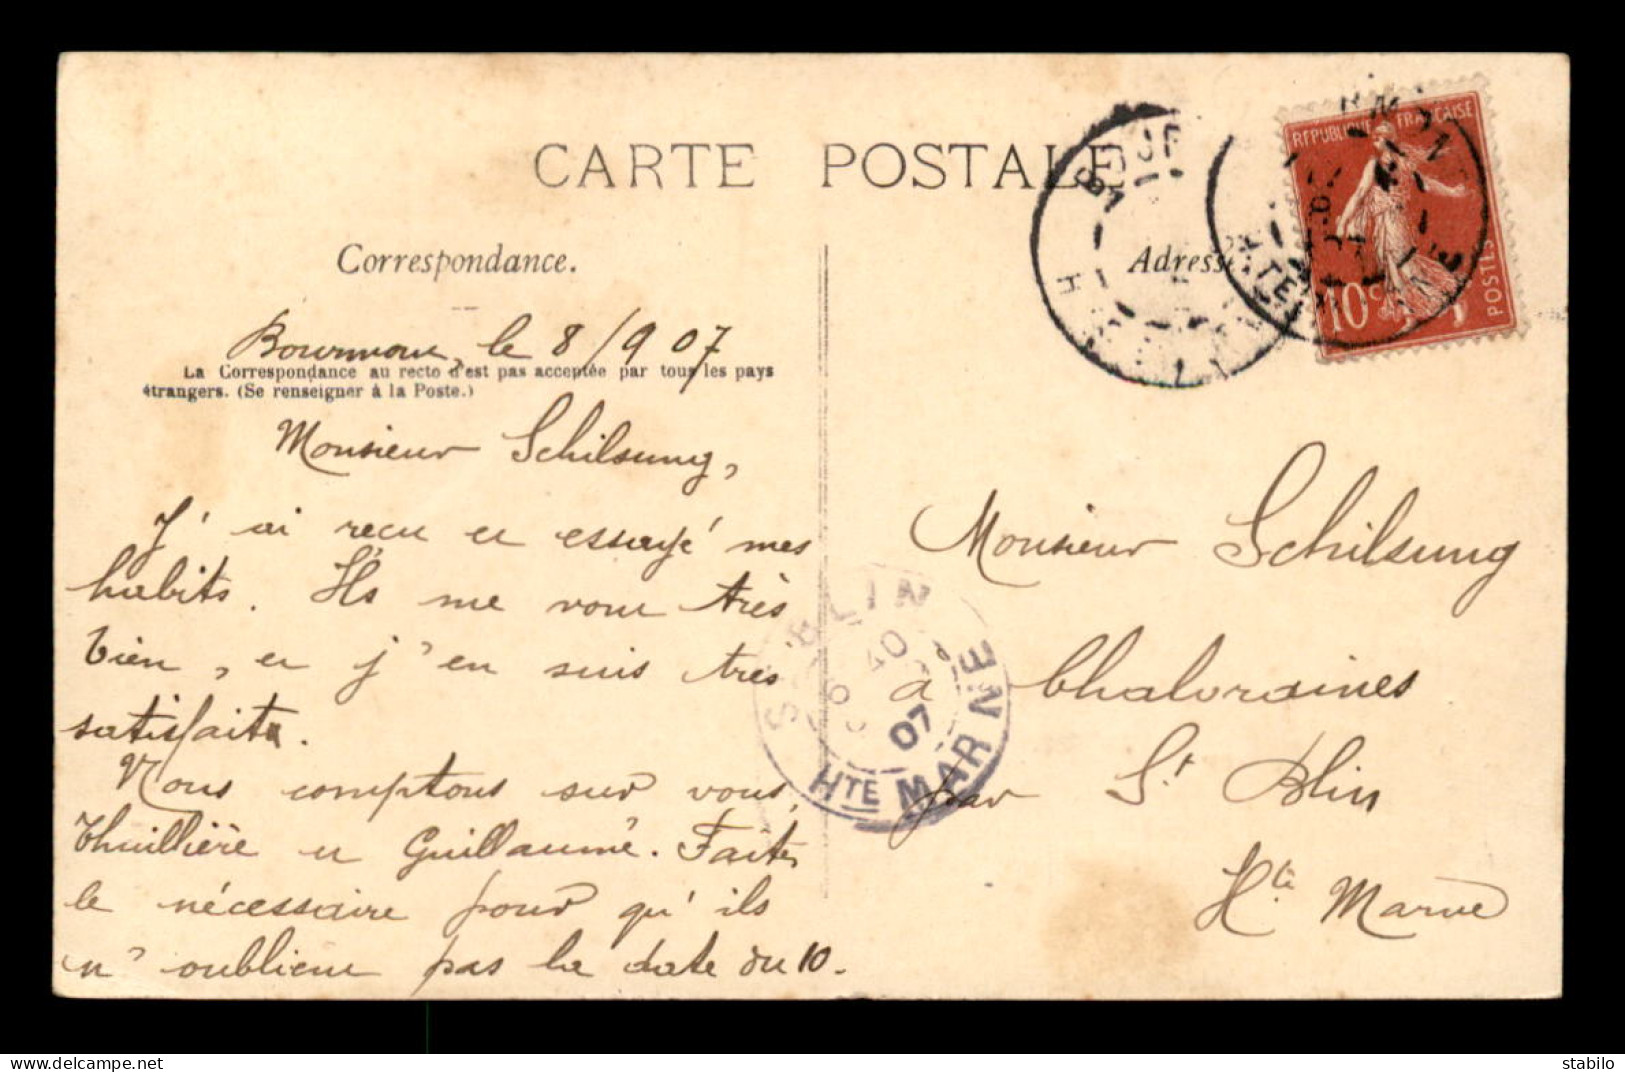 CARTE POSTALE
Correspondance.
Bourmont, le 8/9 07
La Correspondance au recto n'est pas acceptée par tous les pays
étrangers. (Se renseigner à la Poste.)
Monsieur Schilsung,
J'ai reçu et essayé mes
habits. Ils me vont très
bien, et j'en suis très
satisfait.
Nous comptons sur vous,
Thuillière et Guillaumé. Faites
le nécessaire pour qu'ils
n'oublient pas la date du 10.
Adresse
REPUBLIQUE FRANÇAISE
10c POSTES
Monsieur Schilsung
à Chalvraines
par St Blin
Hte Marne
BLIN
40
07
HTE MARNE